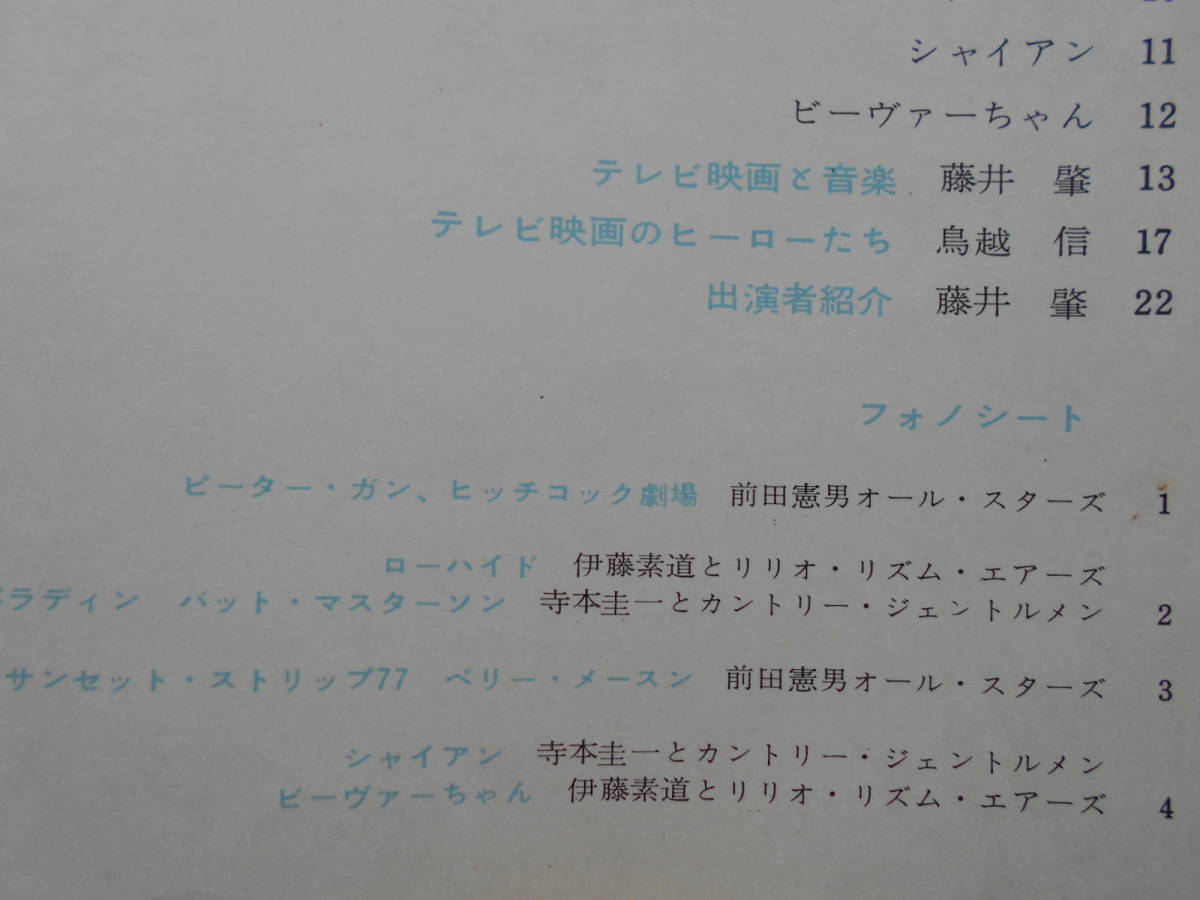 シャイアン 11
ビーヴァーちゃん 12
テレビ映画と音楽 藤井 肇 13
テレビ映画のヒーローたち 鳥越 信 17
出演者紹介 藤井 肇 22
フォノシート
ピーター・ガン、ヒッチコック劇場 前田憲男オール・スターズ 1
ローハイド 伊藤素道とリリオ・リズム・エアーズ
ラディン バット・マスターソン 寺本圭一とカントリー・ジェントルメン 2
サンセット・ストリップ77 ペリー・メースン 前田憲男オール・スターズ 3
シャイアン 寺本圭一とカントリー・ジェントルメン
ビーヴァーちゃん 伊藤素道とリリオ・リズム・エアーズ 4